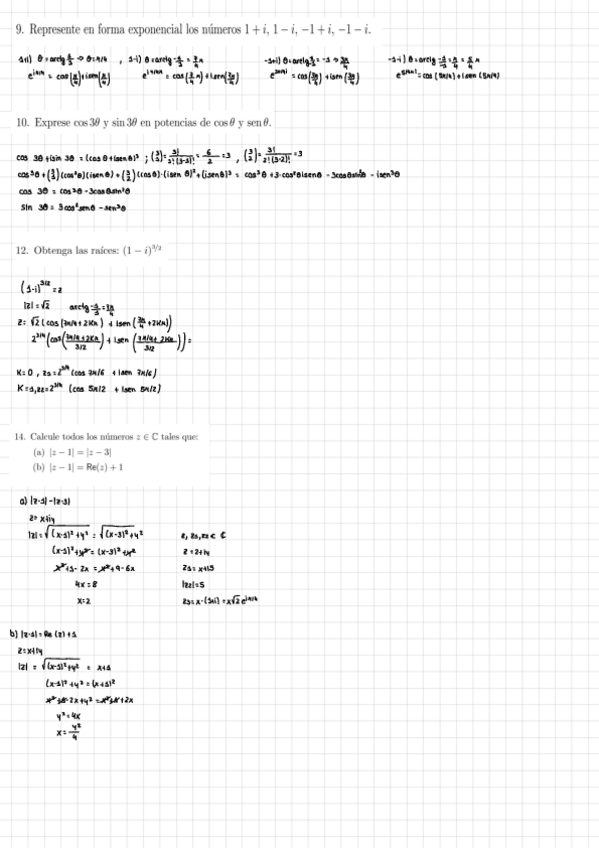 9. Represente en forma exponencial los números 1 + i, 1 − i, −1 + i, −1 − i.
1+i) θ = arctg 1/1 → θ = π/4 , 1-i) θ = arctg -1/1 = 7/4 π
-1+i) θ = arctg 1/-1 = -1 → 3π/4
-1-i) θ = arctg -1/-1 = π/4 = 5/4 π
e^iπ/4 = cos(π/4) + i sen(π/4)
e^i7π/4 = cos(7/4 π) + i sen(7π/4)
e^3π/4i = cos(3π/4) + i sen(3π/4)
e^5π/4i = cos(5π/4) + i sen(5π/4)
10. Exprese cos 3θ y sin 3θ en potencias de cos θ y sen θ.
cos 3θ + i sin 3θ = (cos θ + i sen θ)³ ; (3/1) = 3!/2!(3-2)! = 6/2 = 3 , (3/2) = 3!/2!(3-2)! = 3
cos³θ + (3/1)(cos²θ)(i sen θ) + (3/2)(cos θ)·(i sen θ)² + (i sen θ)³ = cos³θ + 3·cos²θ i sen θ - 3cos θ sen²θ - i sen³θ
cos 3θ = cos³θ - 3cos θ sin²θ
sin 3θ = 3cos²senθ - sen³θ
12. Obtenga las raíces: (1 − i)^3/2
(1-i)^3/2 = z
|z| = √2 arctg -1/1 = 7π/4
z = √2 (cos(7π/4 + 2Kπ) + i sen(7π/4 + 2Kπ))
2^3/4 (cos((7π/4 + 2Kπ)/3/2) + i sen((7π/4 + 2Kπ)/3/2)) =
K = 0 , z1 = 2^3/4 (cos 7π/6 + i sen 7π/6)
K = 1, z2 = 2^3/4 (cos 5π/2 + i sen 5π/2)
14. Calcule todos los números z ∈ C tales que:
(a) |z − 1| = |z − 3|
(b) |z − 1| = Re(z) + 1
a) |z-1| = |z-3|
z = x+iy
|z| = √(x-1)² + y² = √(x-3)² + y²
z, z1, z2 ∈ C
(x-1)² + y² = (x-3)² + y²
z = 2+iy
x² + 1 - 2x = x² + 9 - 6x
4x = 8
|z2| = 5
x = 2
b) |z-1| = Re(z) + 1
z = x+iy
|z| = √(x-1)² + y² = x+1
(x-1)² + y² = (x+1)²
x² + 1 - 2x + y² = x² + 1 + 2x
y² = 4x
x = y²/4